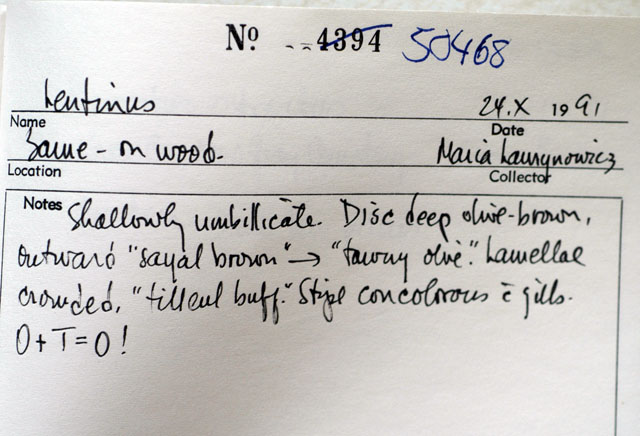 Nº --4394 50468
Lentinus 24.X 1991
Name Date
Same - on wood. Maria Lawrynowicz
Location Collector
Notes Shallowly umbillicate. Disc deep olive-brown,
outward "sayal brown" → "tawny olive." Lamellae
crowded, "tilleul buff." Stipe concolorous c̄ gills.
O + T = 0!